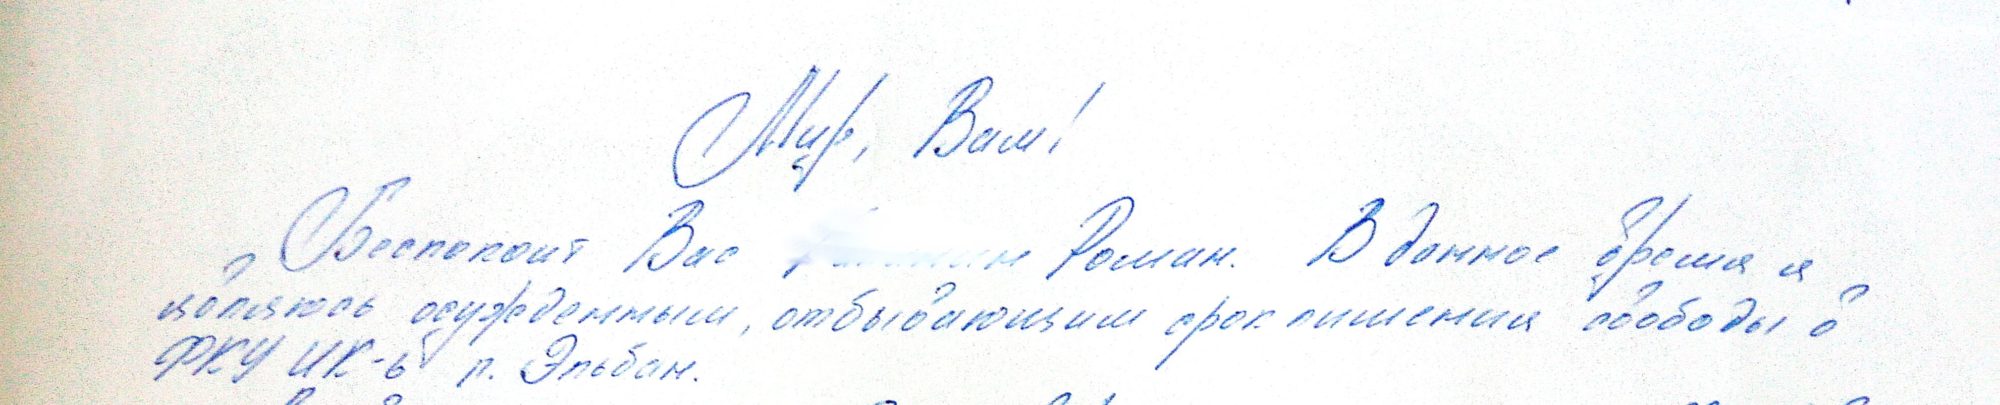 Мир, Вам!
Беспокоит Вас Роман. В данное время я
являюсь осужденным, отбывающим срок лишения свободы в
ФКУ ИК-6 п. Эльбан.